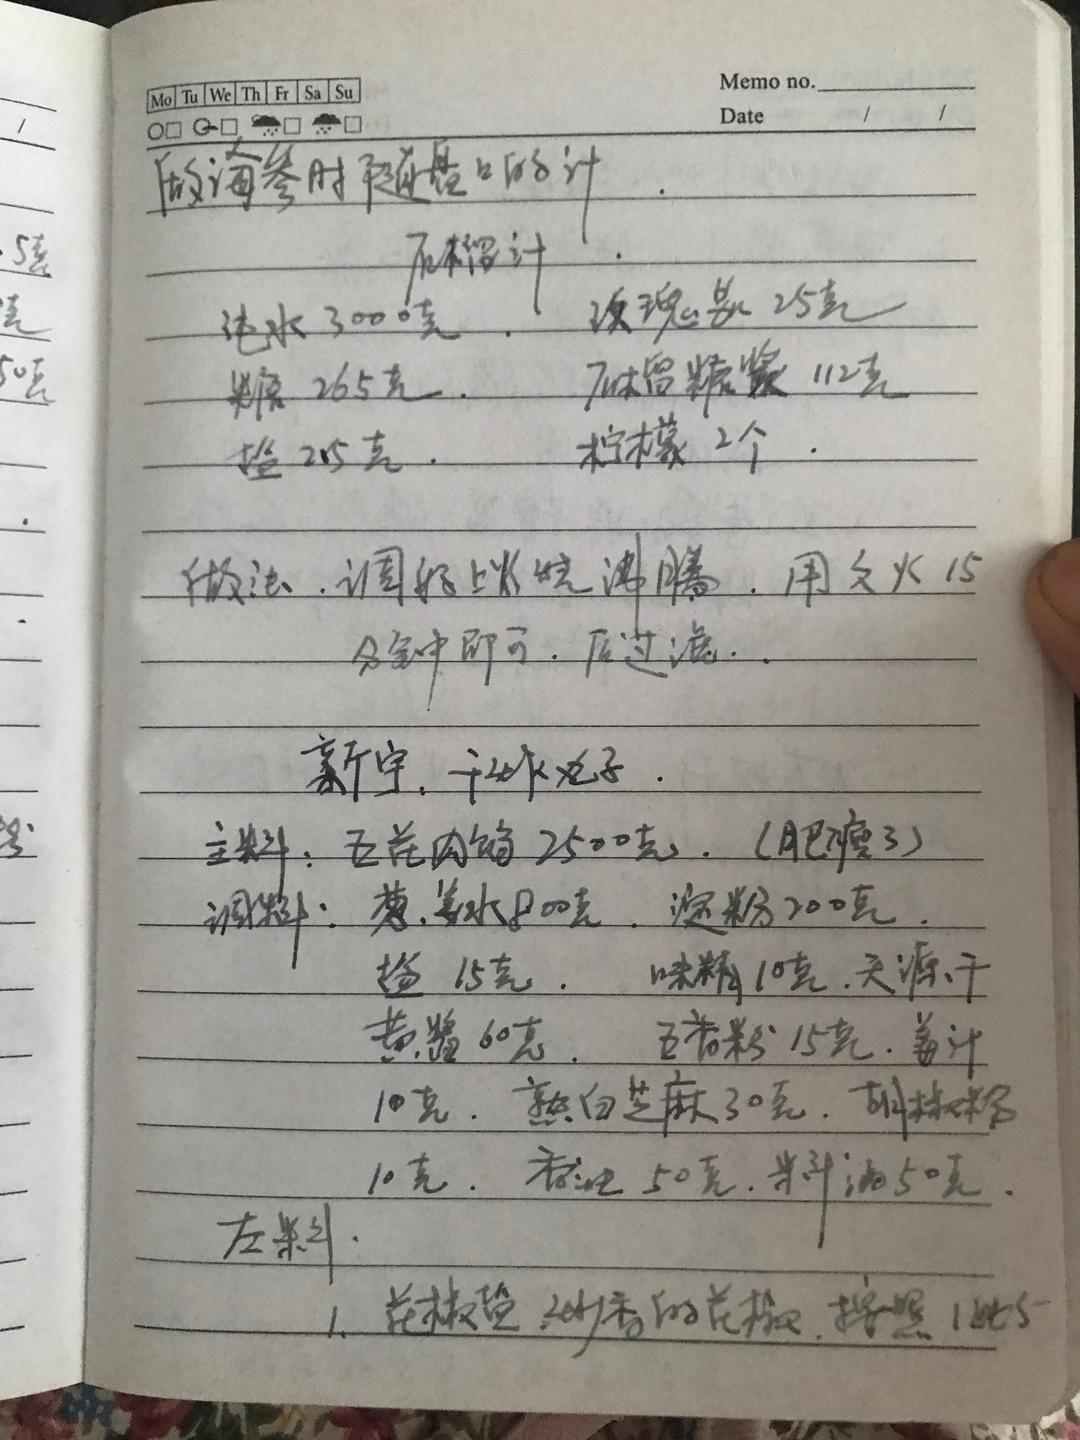 Mo Tu We Th Fr Sa Su
Memo no.
Date / /
做海参时 随盘口的汁
石榴汁
纯水3000克 玫瑰 25克
糖265克. 石榴糖浆 112克
盐 克. 柠檬 2个.
做法.调好上火烧沸腾.用文火15
分钟即可.后过滤.
新宇.干炸丸子.
主料:五花肉馅2500克.(肥瘦3)
调料:葱.姜水800克.淀粉200克.
盐15克. 味精10克.天源干
黄酱60克. 五香粉15克.姜汁
10克. 熟白芝麻30克.胡椒粉
10克. 香油50克.料油50克.
左料.
1.花椒盐 炒香的花椒.按照1比5
5克
克
50克
/